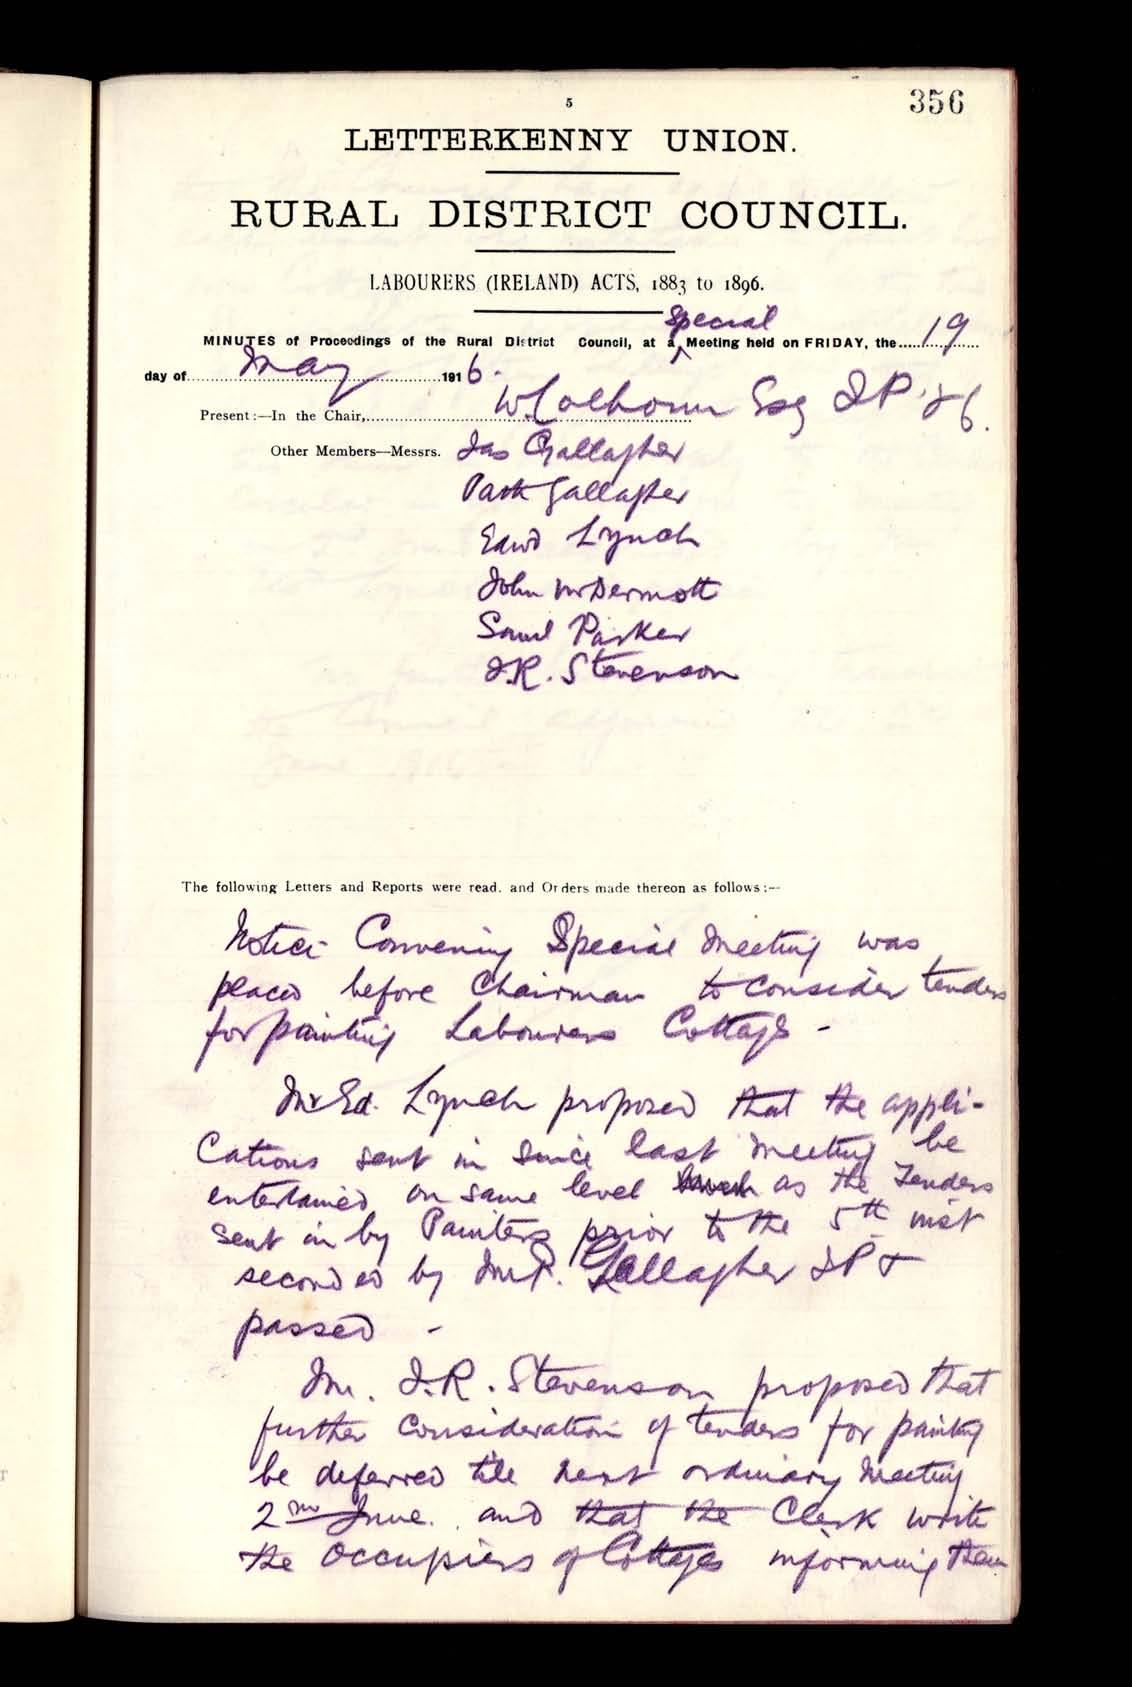 356
5
LETTERKENNY UNION.
RURAL DISTRICT COUNCIL.
LABOURERS (IRELAND) ACTS, 1883 to 1896.
Special
MINUTES of Proceedings of the Rural District Council, at a Meeting held on FRIDAY, the 19
day of May 1916.
Present:—In the Chair, W Colhoun Esq JP
Other Members—Messrs. Jas Gallagher
Patk Gallagher
Edwd Lynch
John McDermott
Saml Parker
J.R. Stevenson
The following Letters and Reports were read, and Orders made thereon as follows:—
Notice Convening Special Meeting was
placed before Chairman to consider tenders
for painting Labourers Cottages -
Mr Ed. Lynch proposed that the appli-
cations sent in since last meeting be
entertained on same level as the Tenders
sent in by Painters prior to the 5th inst
seconded by Mr P. Gallagher JP &
passed -
Mr. J.R. Stevenson proposed that
further consideration of tenders for painting
be deferred till next ordinary meeting
2nd June. and that the Clerk write
the occupiers of Cottages informing them